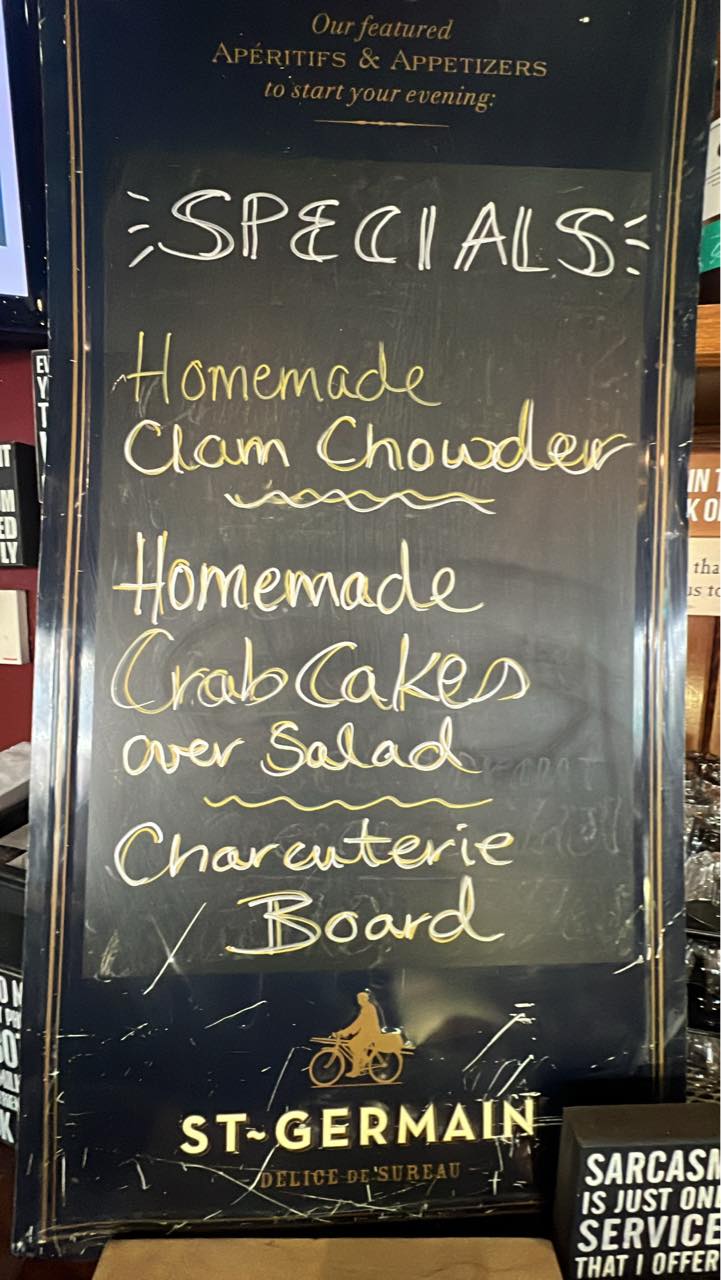 Our featured
APÉRITIFS & APPETIZERS
to start your evening:
SPECIALS
Homemade
Clam Chowder
Homemade
Crab Cakes
over Salad
Charcuterie
Board
ST~GERMAIN
DELICE DE SUREAU
SARCASM
IS JUST ONE
SERVICE
THAT I OFFER